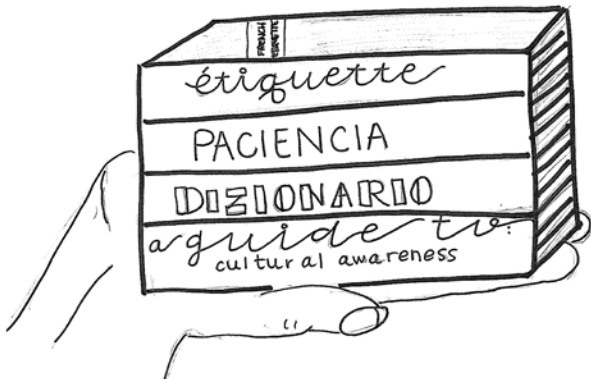 FRENCH
étiquette
PACIENCIA
DIZIONARIO
a guide to:
cultural awareness